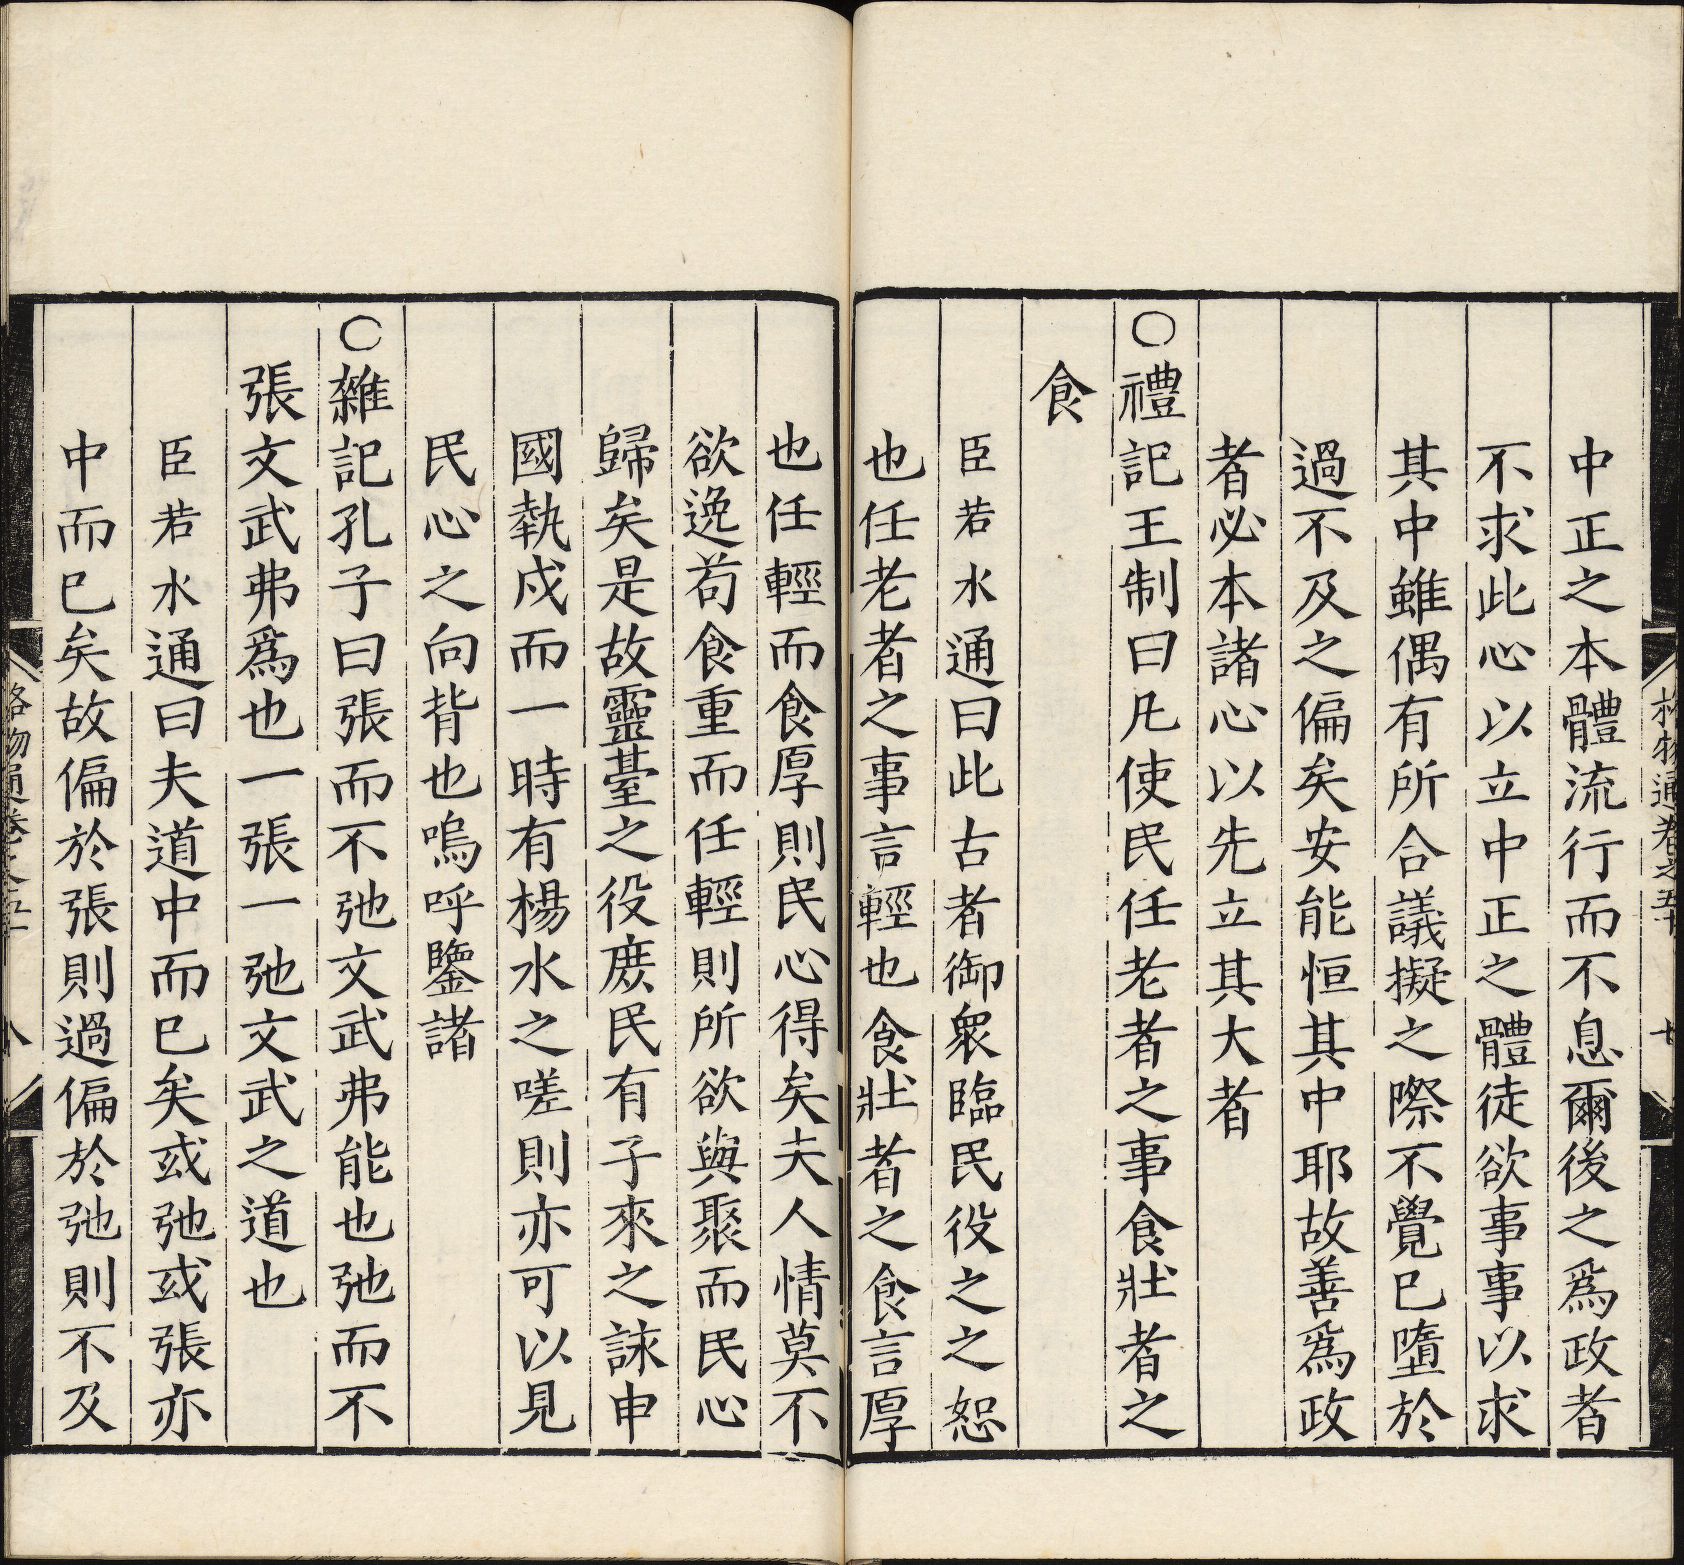 中正之本體流行而不息爾後之爲政者
不求此心以立中正之體徒欲事事以求
其中雖偶有所合議擬之際不覺已墮於
過不及之偏矣安能恒其中耶故善爲政
者必本諸心以先立其大者
○禮記王制曰凡使民任老者之事食壯者之
食
臣若水通曰此古者御衆臨民役之之恕
也任老者之事言輕也食壯者之食言厚
也任輕而食厚則民心得矣夫人情莫不
欲逸苟食重而任輕則所欲與聚而民心
歸矣是故靈臺之役庶民有子來之誄申
國執戍而一時有楊水之嗟則亦可以見
民心之向背也嗚呼鑒諸
○雜記孔子曰張而不弛文武弗能也弛而不
張文武弗爲也一張一弛文武之道也
臣若水通曰夫道中而已矣或弛或張亦
中而已矣故偏於張則過偏於弛則不及
格物通卷之五十
八